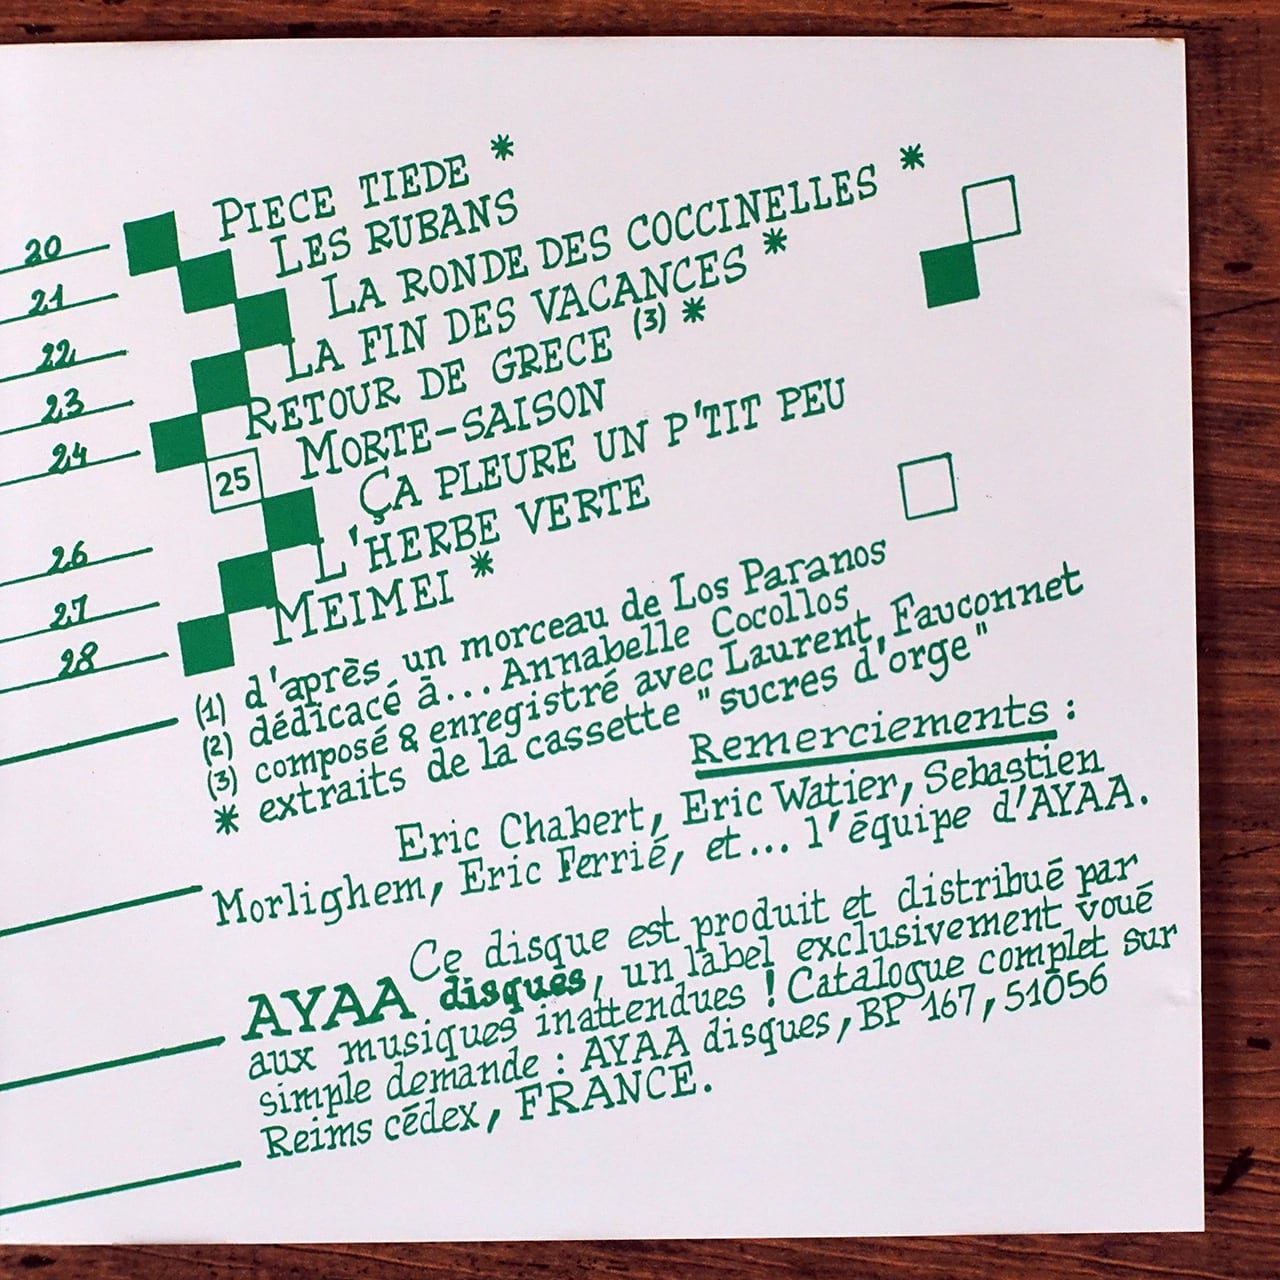 20 PIECE TIEDE *
21 LES RUBANS
22 LA RONDE DES COCCINELLES *
23 LA FIN DES VACANCES *
24 RETOUR DE GRECE (3) *
25 MORTE-SAISON
26 ÇA PLEURE UN P'TIT PEU
27 L'HERBE VERTE
28 MEIMEI *
(1) d'après un morceau de Los Paranos
(2) dédicacé à... Annabelle Cocollos
(3) composé & enregistré avec Laurent Fauconnet
* extraits de la cassette "sucres d'orge"
Remerciements :
Eric Chabert, Eric Watier, Sebastien
Morlighem, Eric Ferrié, et... l'équipe d'AYAA.
Ce disque est produit et distribué par
AYAA disques, un label exclusivement voué
aux musiques inattendues ! Catalogue complet sur
simple demande : AYAA disques, BP 167, 51056
Reims cédex, FRANCE.